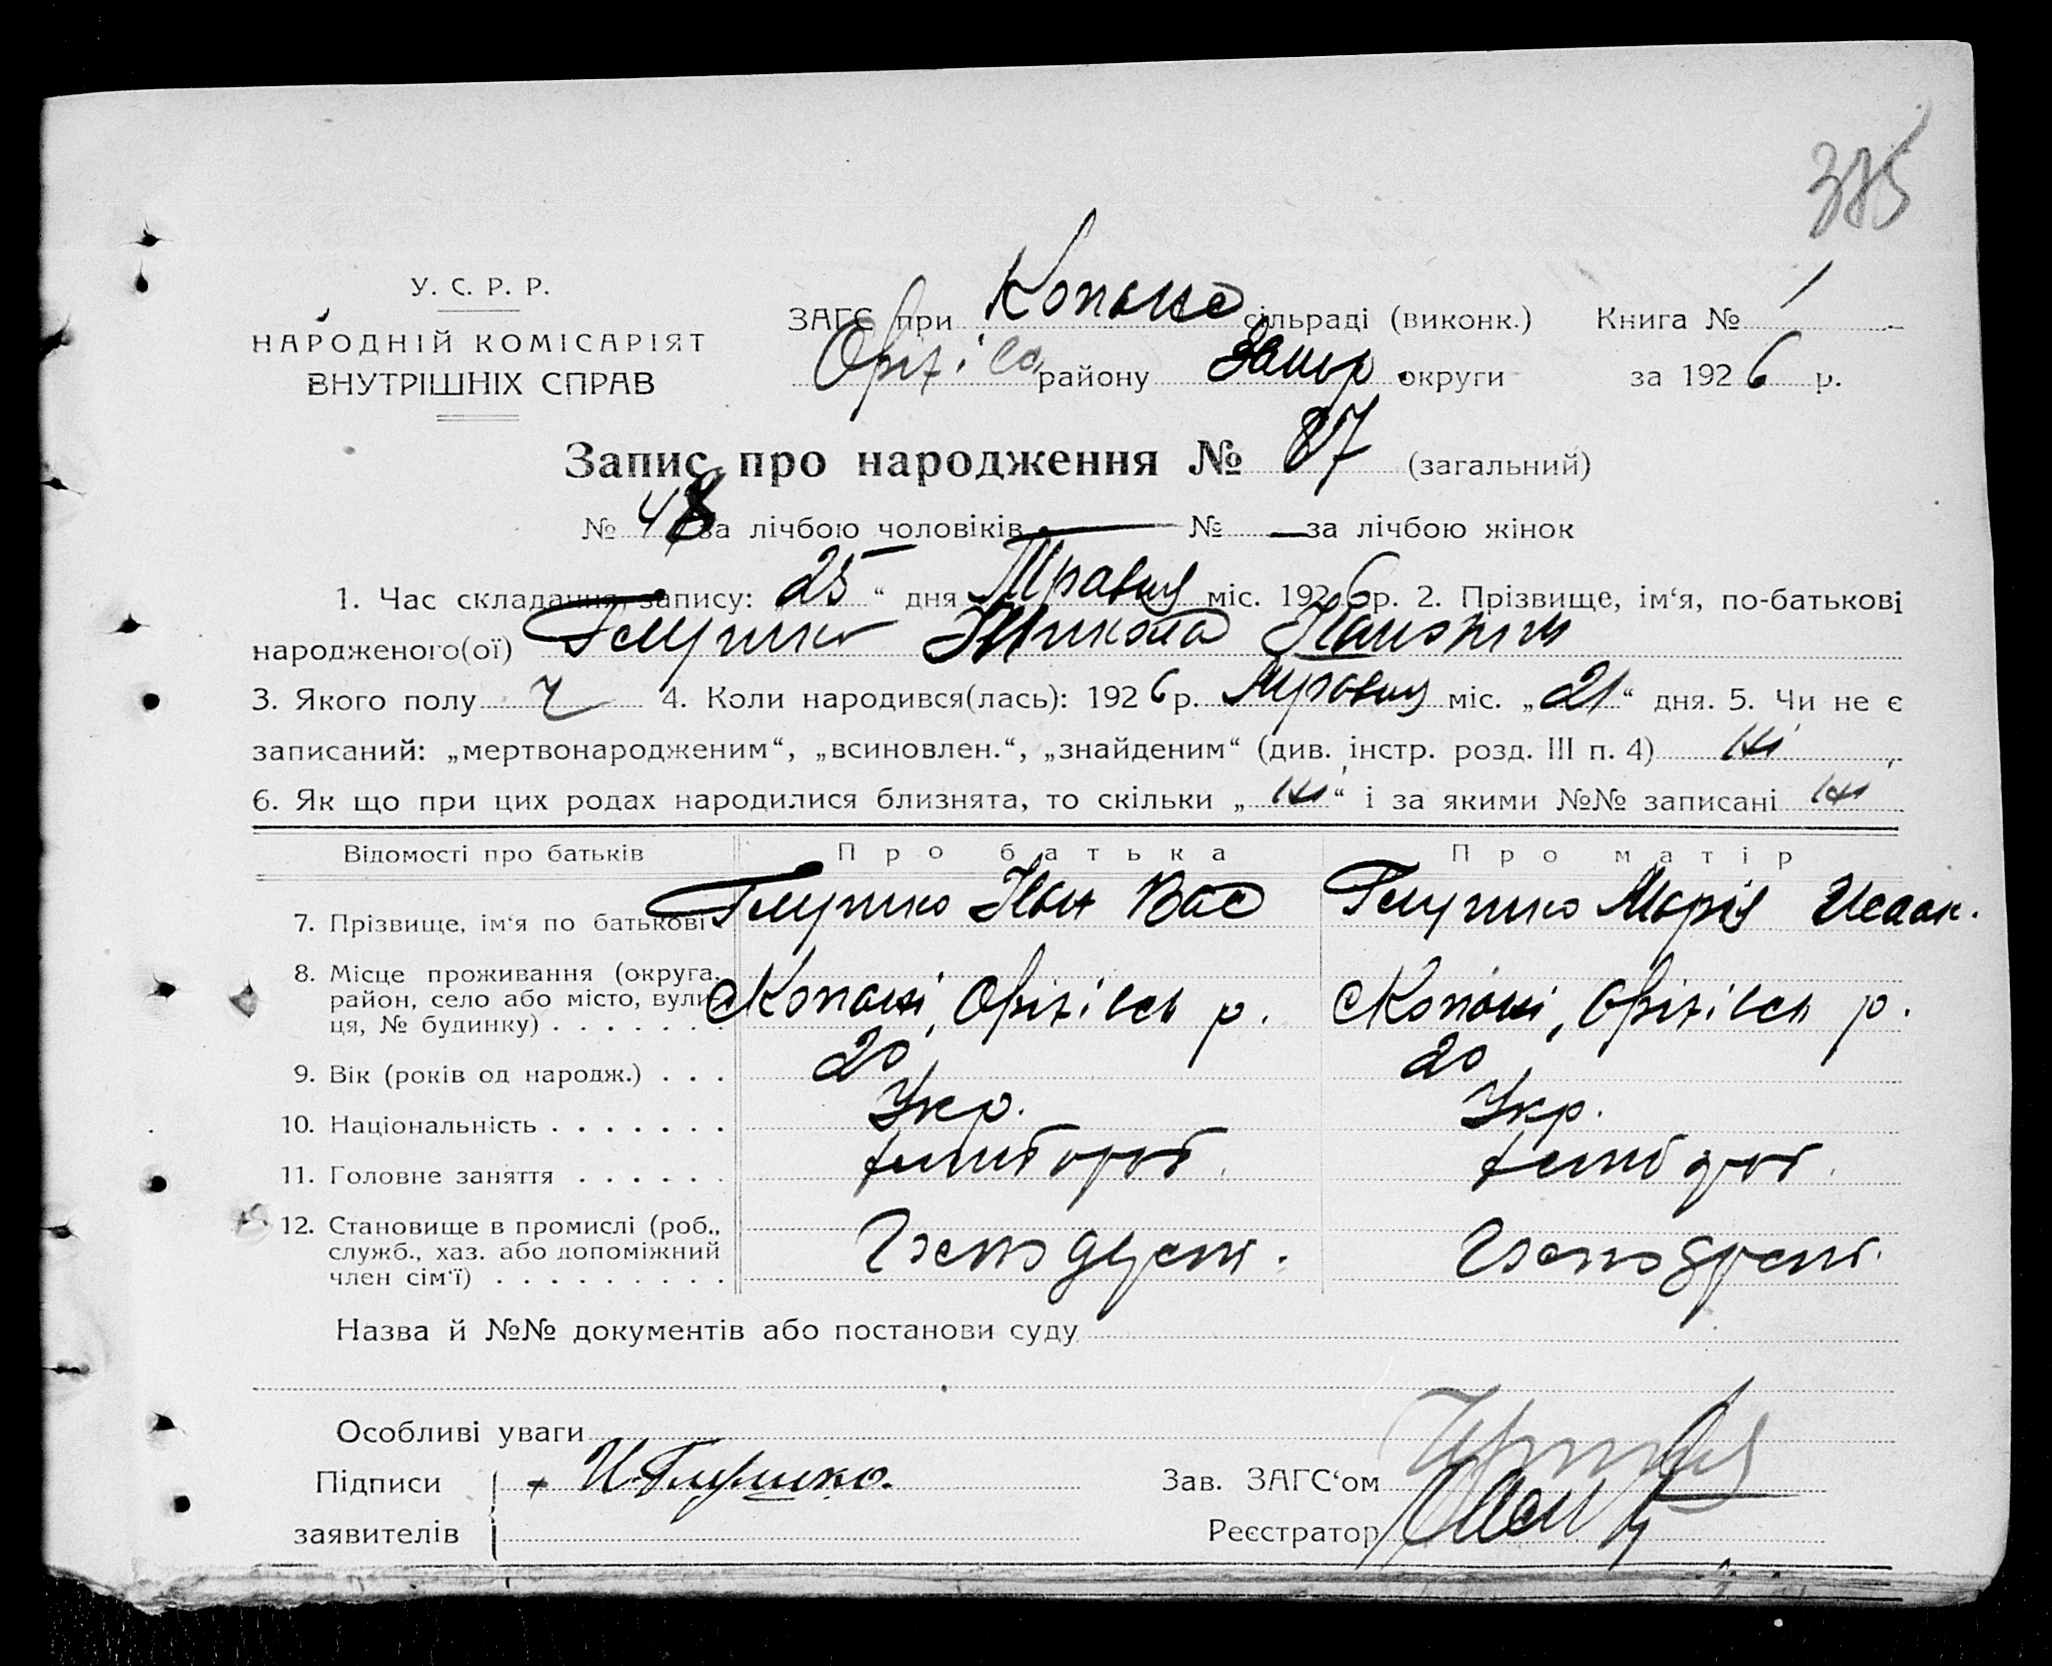 385
У. С. Р. Р.
НАРОДНІЙ КОМІСАРІЯТ
ВНУТРІШНІХ СПРАВ
ЗАГС при Копанс сільраді (виконк.) Книга № 1
Оріхівс району Запор. округи за 1926 р.
Запис про народження № 87 (загальний)
№ 48 за лічбою чоловіків № — за лічбою жінок
1. Час складання запису: „25“ дня Травня міс. 1926 р. 2. Прізвище, ім‘я, по-батькові
народженого(ої) Глушко Микола
3. Якого полу ч 4. Коли народився(лась): 1926 р. Травня міс. „21“ дня. 5. Чи не є
записаний: „мертвонародженим“, „всиновлен.“, „знайденим“ (див. інстр. розд. III п. 4) ні
6. Як що при цих родах народилися близнята, то скільки „ні“ і за якими №№ записані ні
Відомості про батьків Про батька Про матір
7. Прізвище, ім‘я по батькові Глушко Іван Вас Глушко Марія Исаак.
8. Місце проживання (округа, район, село або місто, вулиця, № будинку) Копані, Оріхівськ р. Копані, Оріхівськ р.
9. Вік (років од народж.) 20 20
10. Національність Укр. Укр.
11. Головне заняття хлібороб. хлібороб.
12. Становище в промислі (роб., служб., хаз. або допоміжний член сім‘ї)
Назва й №№ документів або постанови суду
Особливі уваги
Підписи заявителів + И Глушко.
Зав. ЗАГС‘ом
Реєстратор